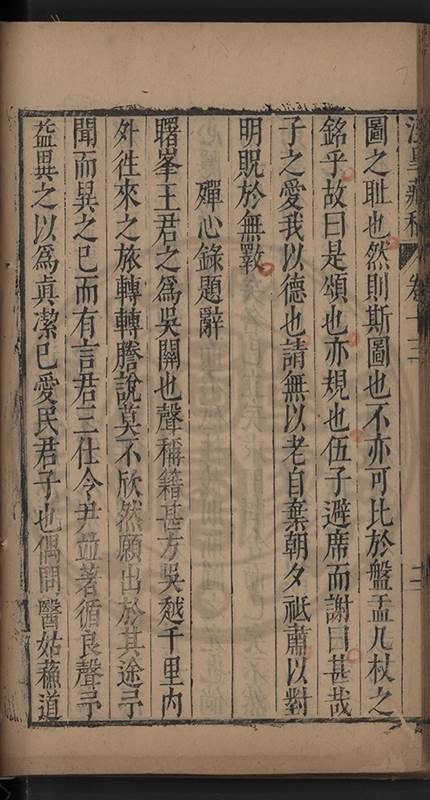 卷十三
圖之耻也然則斯圖也不亦可比於盤盂几杖之
銘乎故曰是頌也亦規也伍子避席而謝曰甚哉
子之愛我以德也請無以老自棄朝夕祗肅以對
明貺於無斁
殫心錄題辭
曙峯王君之為吳關也聲稱籍甚方吳越千里內
外徃來之旅轉轉謄說莫不欣然願出於其途予
聞而異之已而有言君三仕令尹並著循良聲予
益異之以為真潔已愛民君子也偶問醫姑蘓道